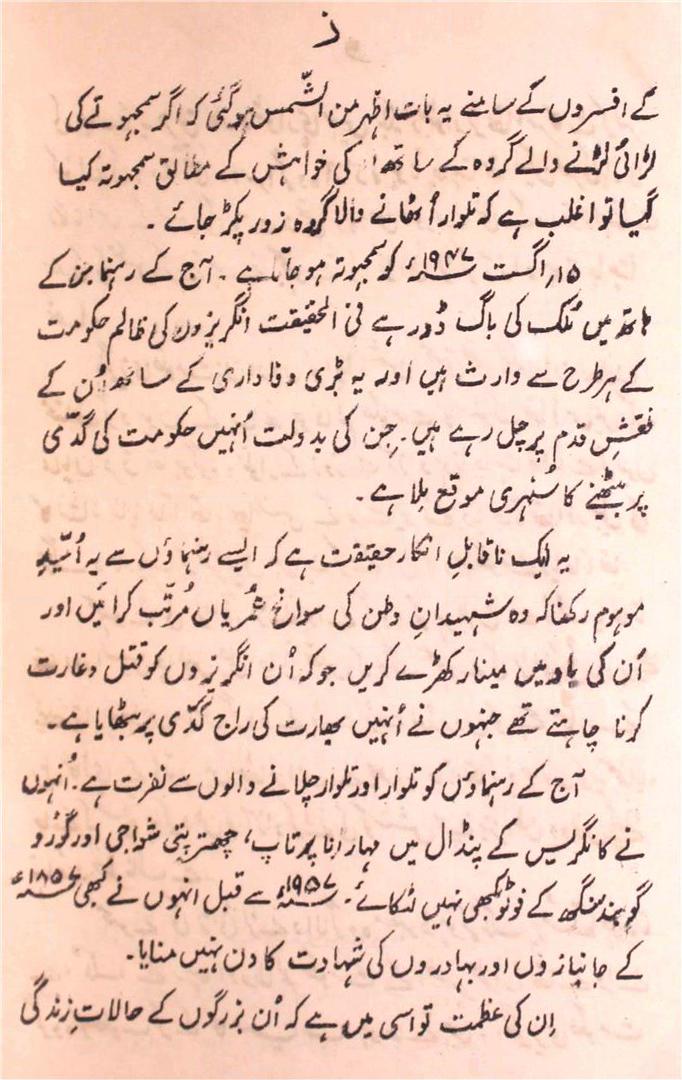 ز
کے افسروں کے سامنے یہ بات اظہر من الشّمس ہوگئی کہ اگر سمجھوتے کی
لڑائی لڑنے والے گروہ کے ساتھ اُن کی خواہش کے مطابق سمجھوتہ کیا
گیا تو اغلب ہے کہ تلوار اُٹھانے والا گروہ زور پکڑ جائے ۔
۱۵؍ اگست ۱۹۴۷ء کو سمجھوتہ ہو جاتا ہے ۔ آج کے رہنما جن کے
ہاتھ میں مُلک کی باگ ڈور ہے فی الحقیقت انگریزوں کی ظالم حکومت
کے ہر طرح سے وارث ہیں اور یہ بڑی وفاداری کے ساتھ اُن کے
نقشِ قدم پر چل رہے ہیں ۔ جِن کی بدولت اُنہیں حکومت کی گدّی
پر بیٹھنے کا سُنہری موقع مِلا ہے ۔
یہ ایک ناقابلِ انکار حقیقت ہے کہ ایسے رہنماؤں سے یہ اُمّیدِ
موہوم رکھنا کہ وہ شہیدانِ وطن کی سوانح عُمریاں مُرتّب کرائیں اور
اُن کی یاد میں مینار کھڑے کریں جو کہ اُن انگریزوں کو قتل و غارت
کرنا چاہتے تھے جنہوں نے اُنہیں بھارت کی راج گدّی پر بٹھایا ہے ۔
آج کے رہنماؤں کو تلوار اور تلوار چلانے والوں سے نفرت ہے ۔ اُنہوں
نے کانگریس کے پنڈال میں مہارانا پرتاپ، چھترپتی شواجی اور گورُو
گوبند سنگھ کے فوٹو کبھی نہیں لٹکائے ۔ ۱۹۵۷ء سے قبل انہوں نے کبھی ۱۸۵۷ء
کے جانبازوں اور بہادروں کی شہادت کا دن نہیں منایا ۔
اِن کی عظمت تو اسی میں ہے کہ اُن بزرگوں کے حالاتِ زندگی